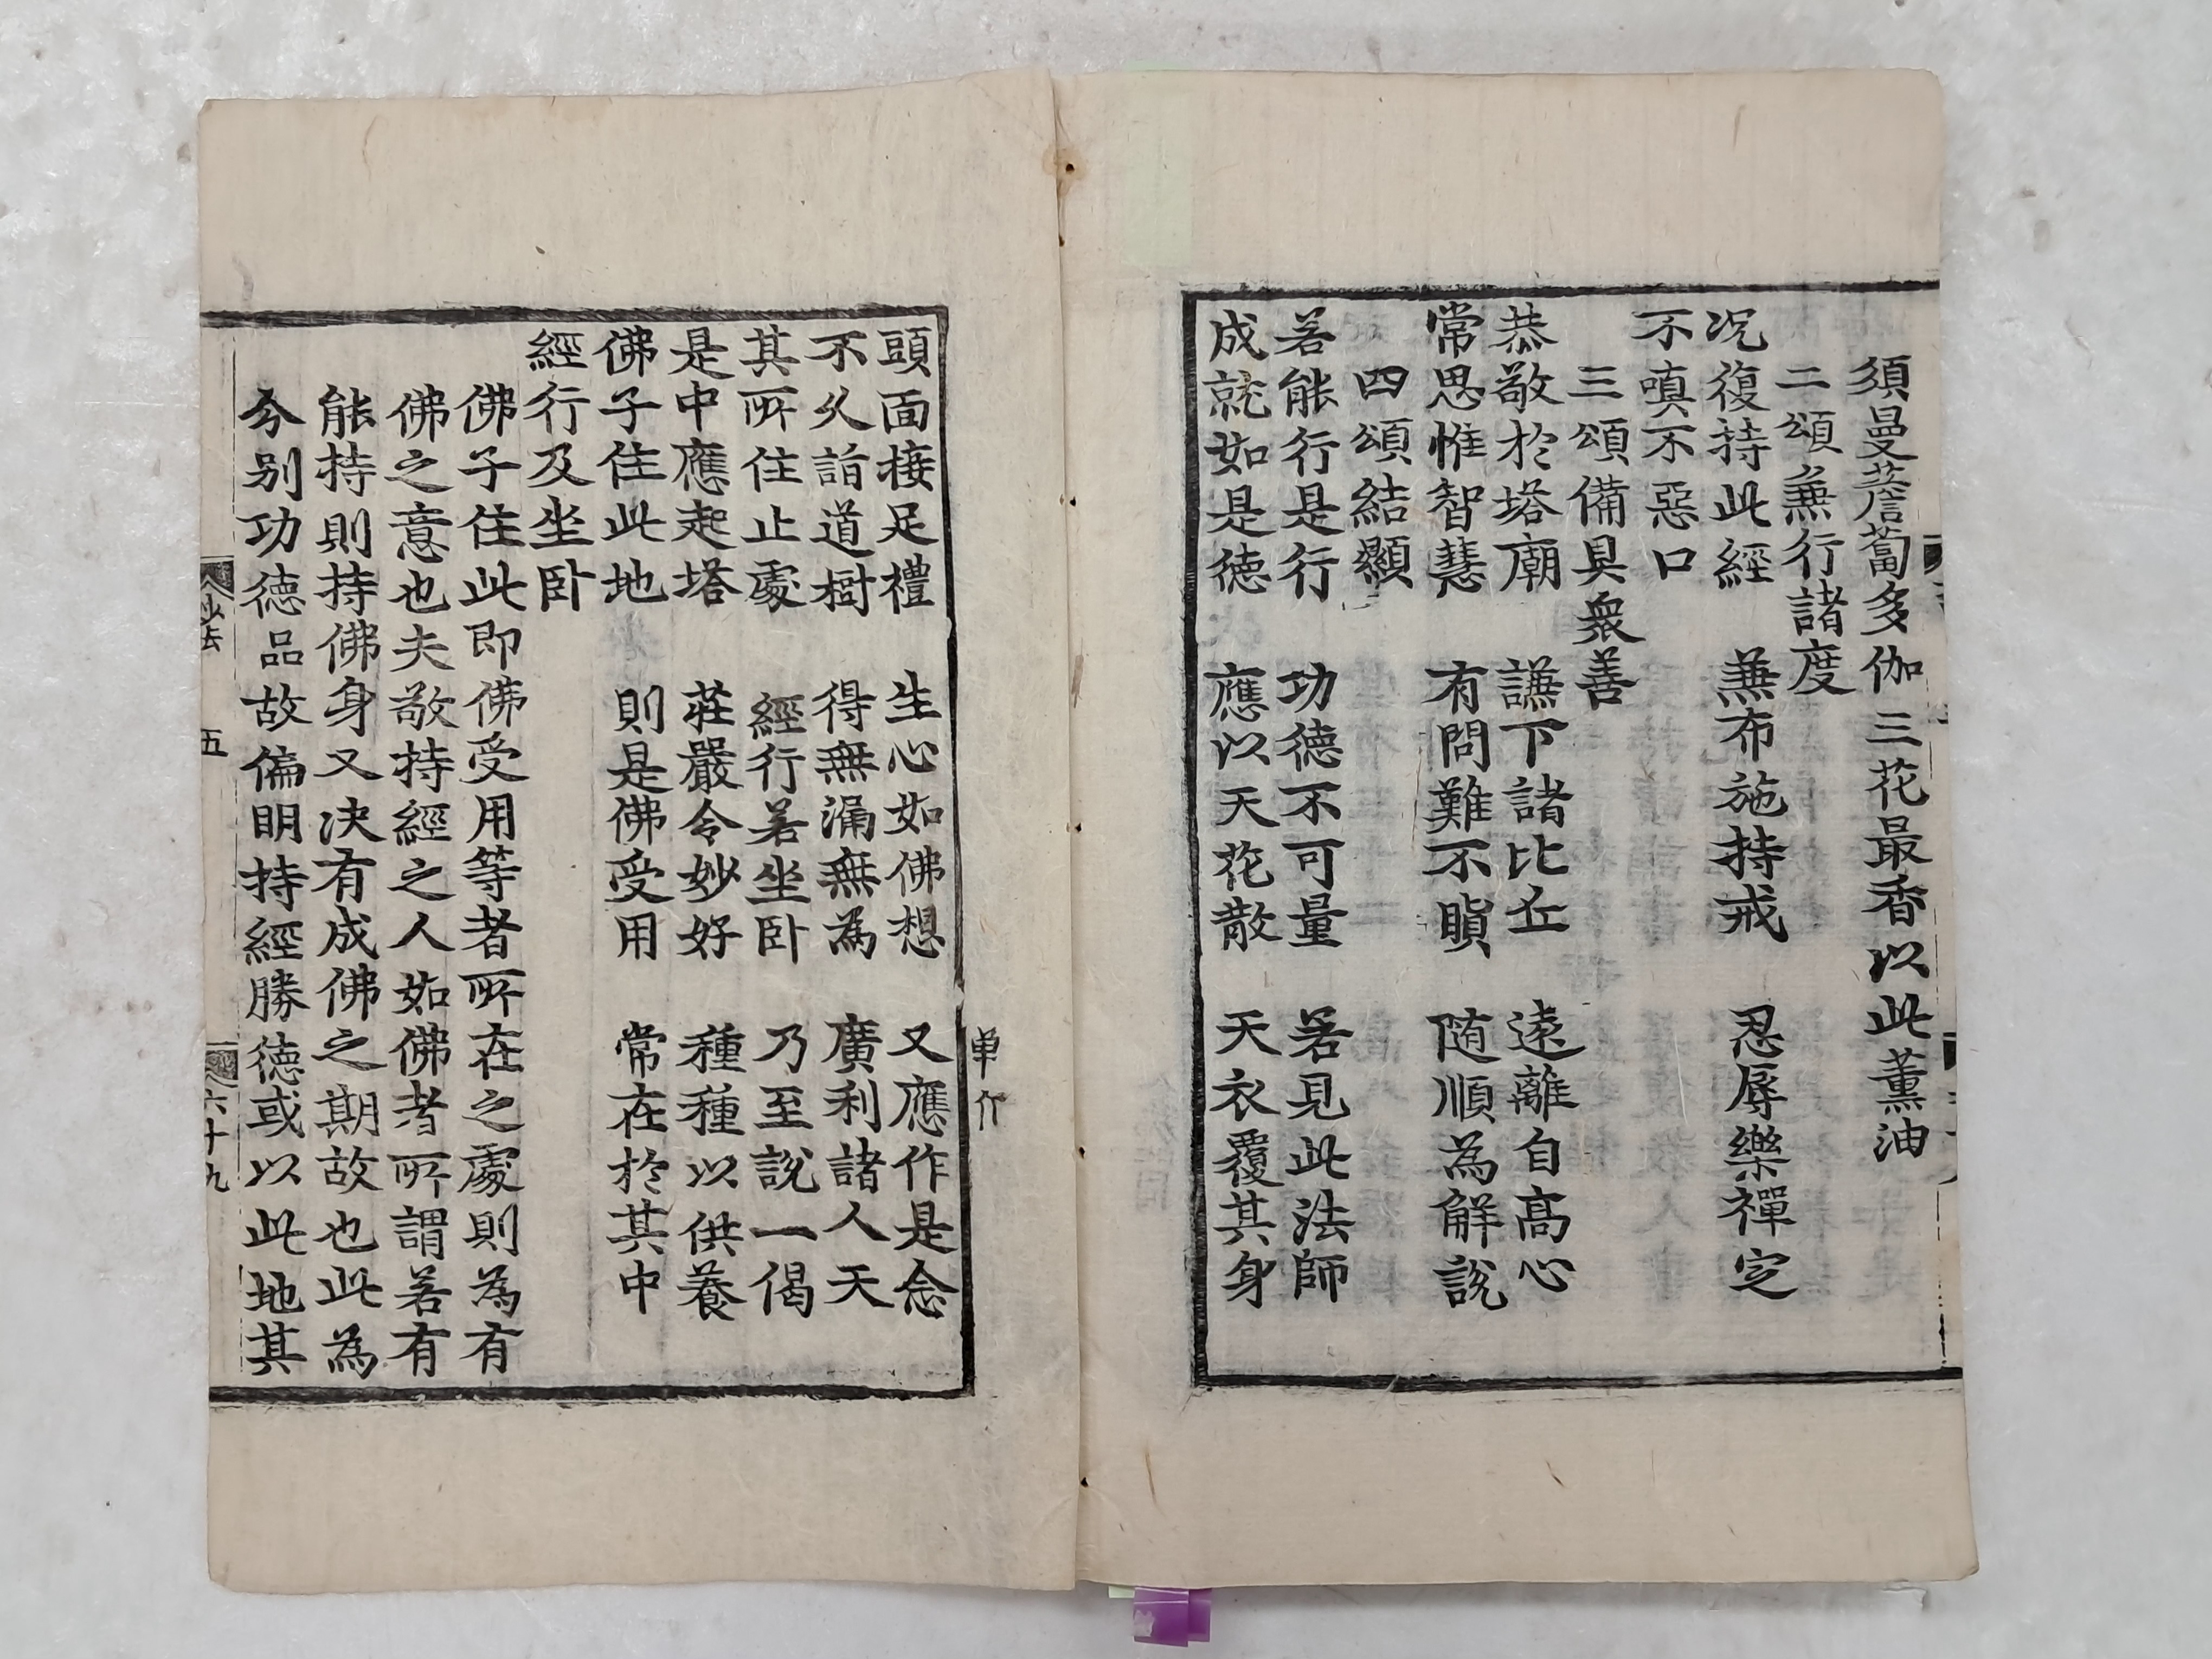 須曼薝蔔多伽三花最香以此薰油
二頌兼行諸度
况復持此經　兼布施持戒　忍辱樂禪定
不嗔不惡口
三頌備具衆善
恭敬於塔廟　謙下諸比丘　遠離自高心
常思惟智慧　有問難不瞋　随順為解說
四頌結顯
若能行是行　功德不可量　若見此法師
成就如是德　應以天花散　天衣覆其身
頭面接足禮　生心如佛想　又應作是念
不久詣道樹　得無漏無為　廣利諸人天
其所住止處　經行若坐卧　乃至說一偈
是中應起塔　莊嚴令妙好　種種以供養
佛子住此地　則是佛受用　常在於其中
經行及坐卧
佛子住此即佛受用等者所在之處則為有
佛之意也夫敬持經之人如佛者所謂若有
能持則持佛身又决有成佛之期故也此為
今别功德品故偏明持經勝德或以此地其
妙法　五　六十九